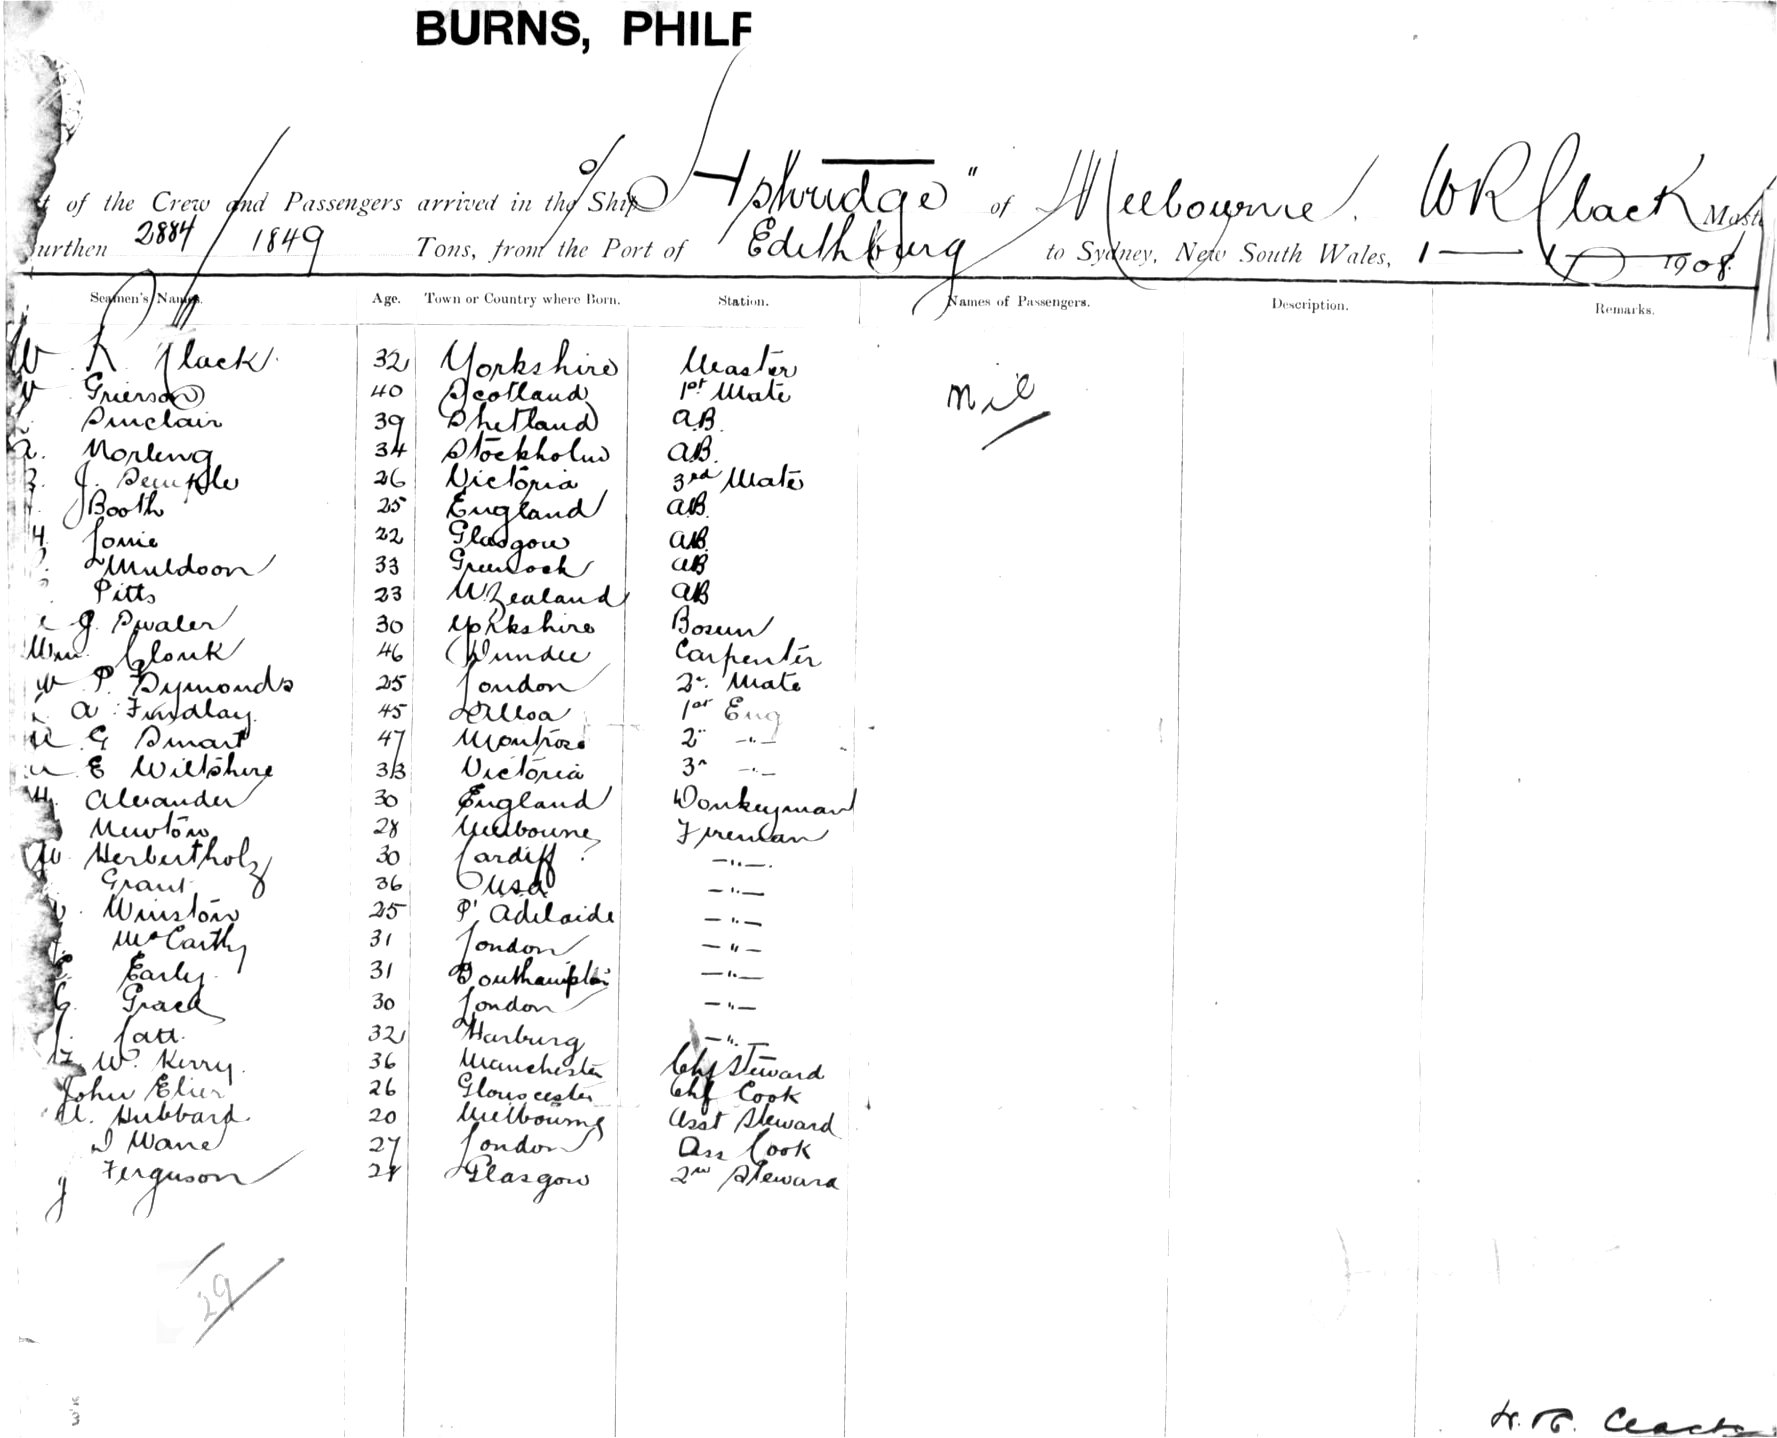 BURNS, PHILP
of the Crew and Passengers arrived in the Ship S/S "Ashridge" of Melbourne. W R Clack
urthen 2884 1849 Tons, from the Port of Edithburg to Sydney, New South Wales, 1 — 1 — 1908
Seamen's Names. Age. Town or Country where Born. Station. Names of Passengers. Description. Remarks.
W R Clack 32 Yorkshire Master nil
Grierson 40 Scotland 1st Mate
Sinclair 39 Shetland A.B.
Norling 34 Stockholm A.B.
J. Semple 26 Victoria 3rd Mate
Booth 25 England A.B.
H. 22 Glasgow A.B.
Muldoon 33 Greenock AB
Pitts 23 N. Zealand AB
J. Swaler 30 Yorkshire Bosun
Wm. Clouk 46 Dundee Carpenter
W P. Symonds 25 London 2n. Mate
A. Findlay. 45 Alloa 1st Eng
G Smart 47 Montrose 2n —"—
E Wiltshire 33 Victoria 3rd —"—
H. Alexander 30 England Donkeyman
Newton 28 Melbourne Fireman
W. Herbertholz 30 Cardiff ? —"—.
Grant 36 USA —"—
Winston 25 Pt Adelaide —"—
McCarthy 31 London —"—
E. Early. 31 Southampton —"—
G. Grace 30 London —"—
J. Catt. 32 Harburg —"—
W. Kerry. 36 Manchester Chf Steward
John Elier 26 Gloucester Chf Cook
A. Hubbard. 20 Melbourne Asst Steward
J Wane 27 London Ass Cook
J Ferguson 21 Glasgow 2nd Steward
29
W. R. Clack